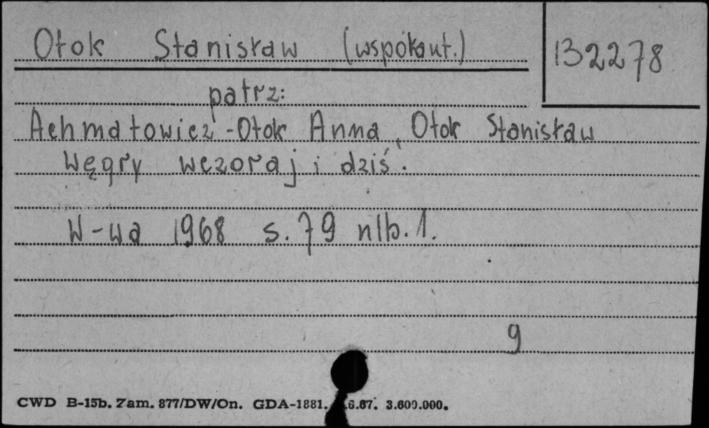 Otok Stanisław (współaut.)
132278
patrz:
Achmatowicz-Otok Anna, Otok Stanisław
Węgry wczoraj i dziś.
W-wa 1968 s. 79 nlb. 1.
9
CWD B-15b. Zam. 877/DW/On. GDA-1881. 6.67. 3.600.000.